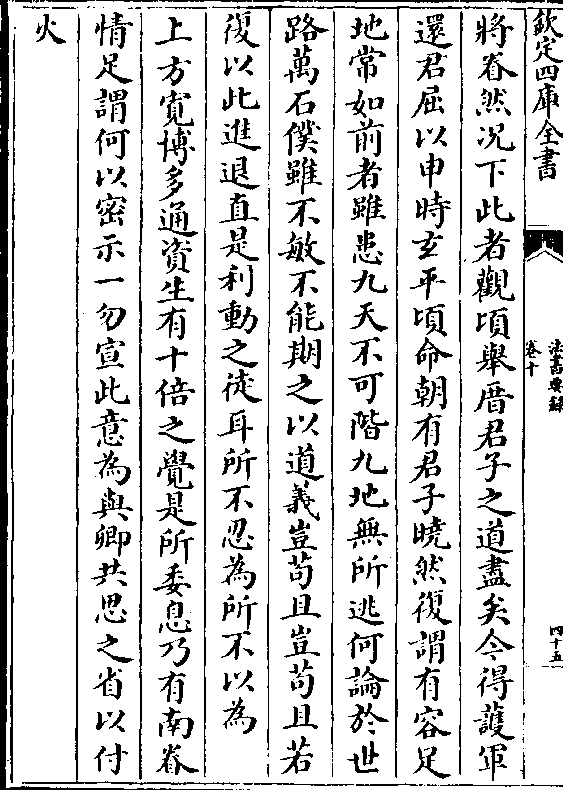 欽定四庫全書
法書要録
卷十
四十五
將眷然况下此者觀頃舉厝君子之道盡矣今得䕶軍
還君屈以申時玄平頃命朝有君子曉然復謂有容足
地常如前者雖患九天不可階九地無所逃何論於世
路萬石僕雖不敏不能期之以道義豈苟且豈苟且若
復以此進退直是利動之徒耳所不忍為所不以為
上方寛博多通資生有十倍之覺是所委息乃有南眷
情足謂何以密示一勿宣此意為與卿共思之省以付
火